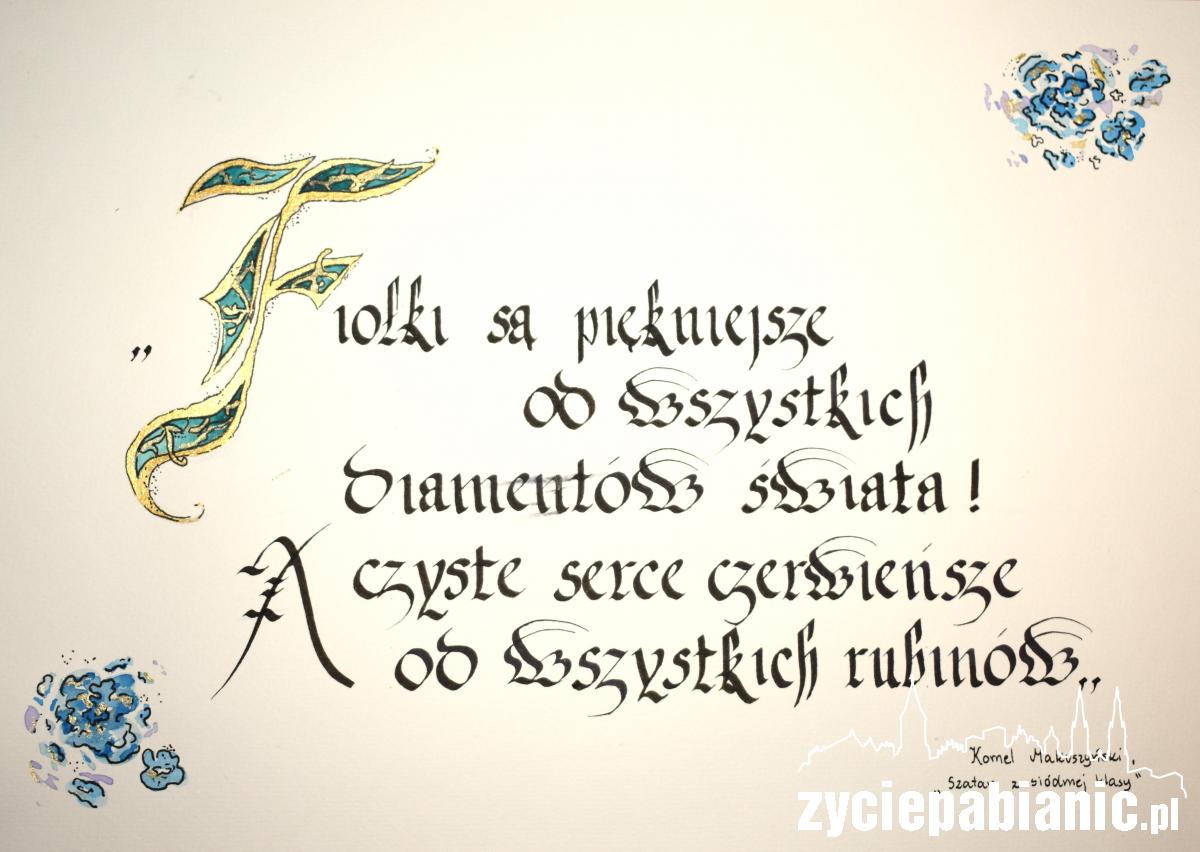 „Fiołki są piękniejsze
od wszystkich
diamentów świata!
A czyste serce czerwieńsze
od wszystkich rubinów„
Kornel Makuszyński,
„Szatan z siódmej klasy"
zyciepabianic.pl